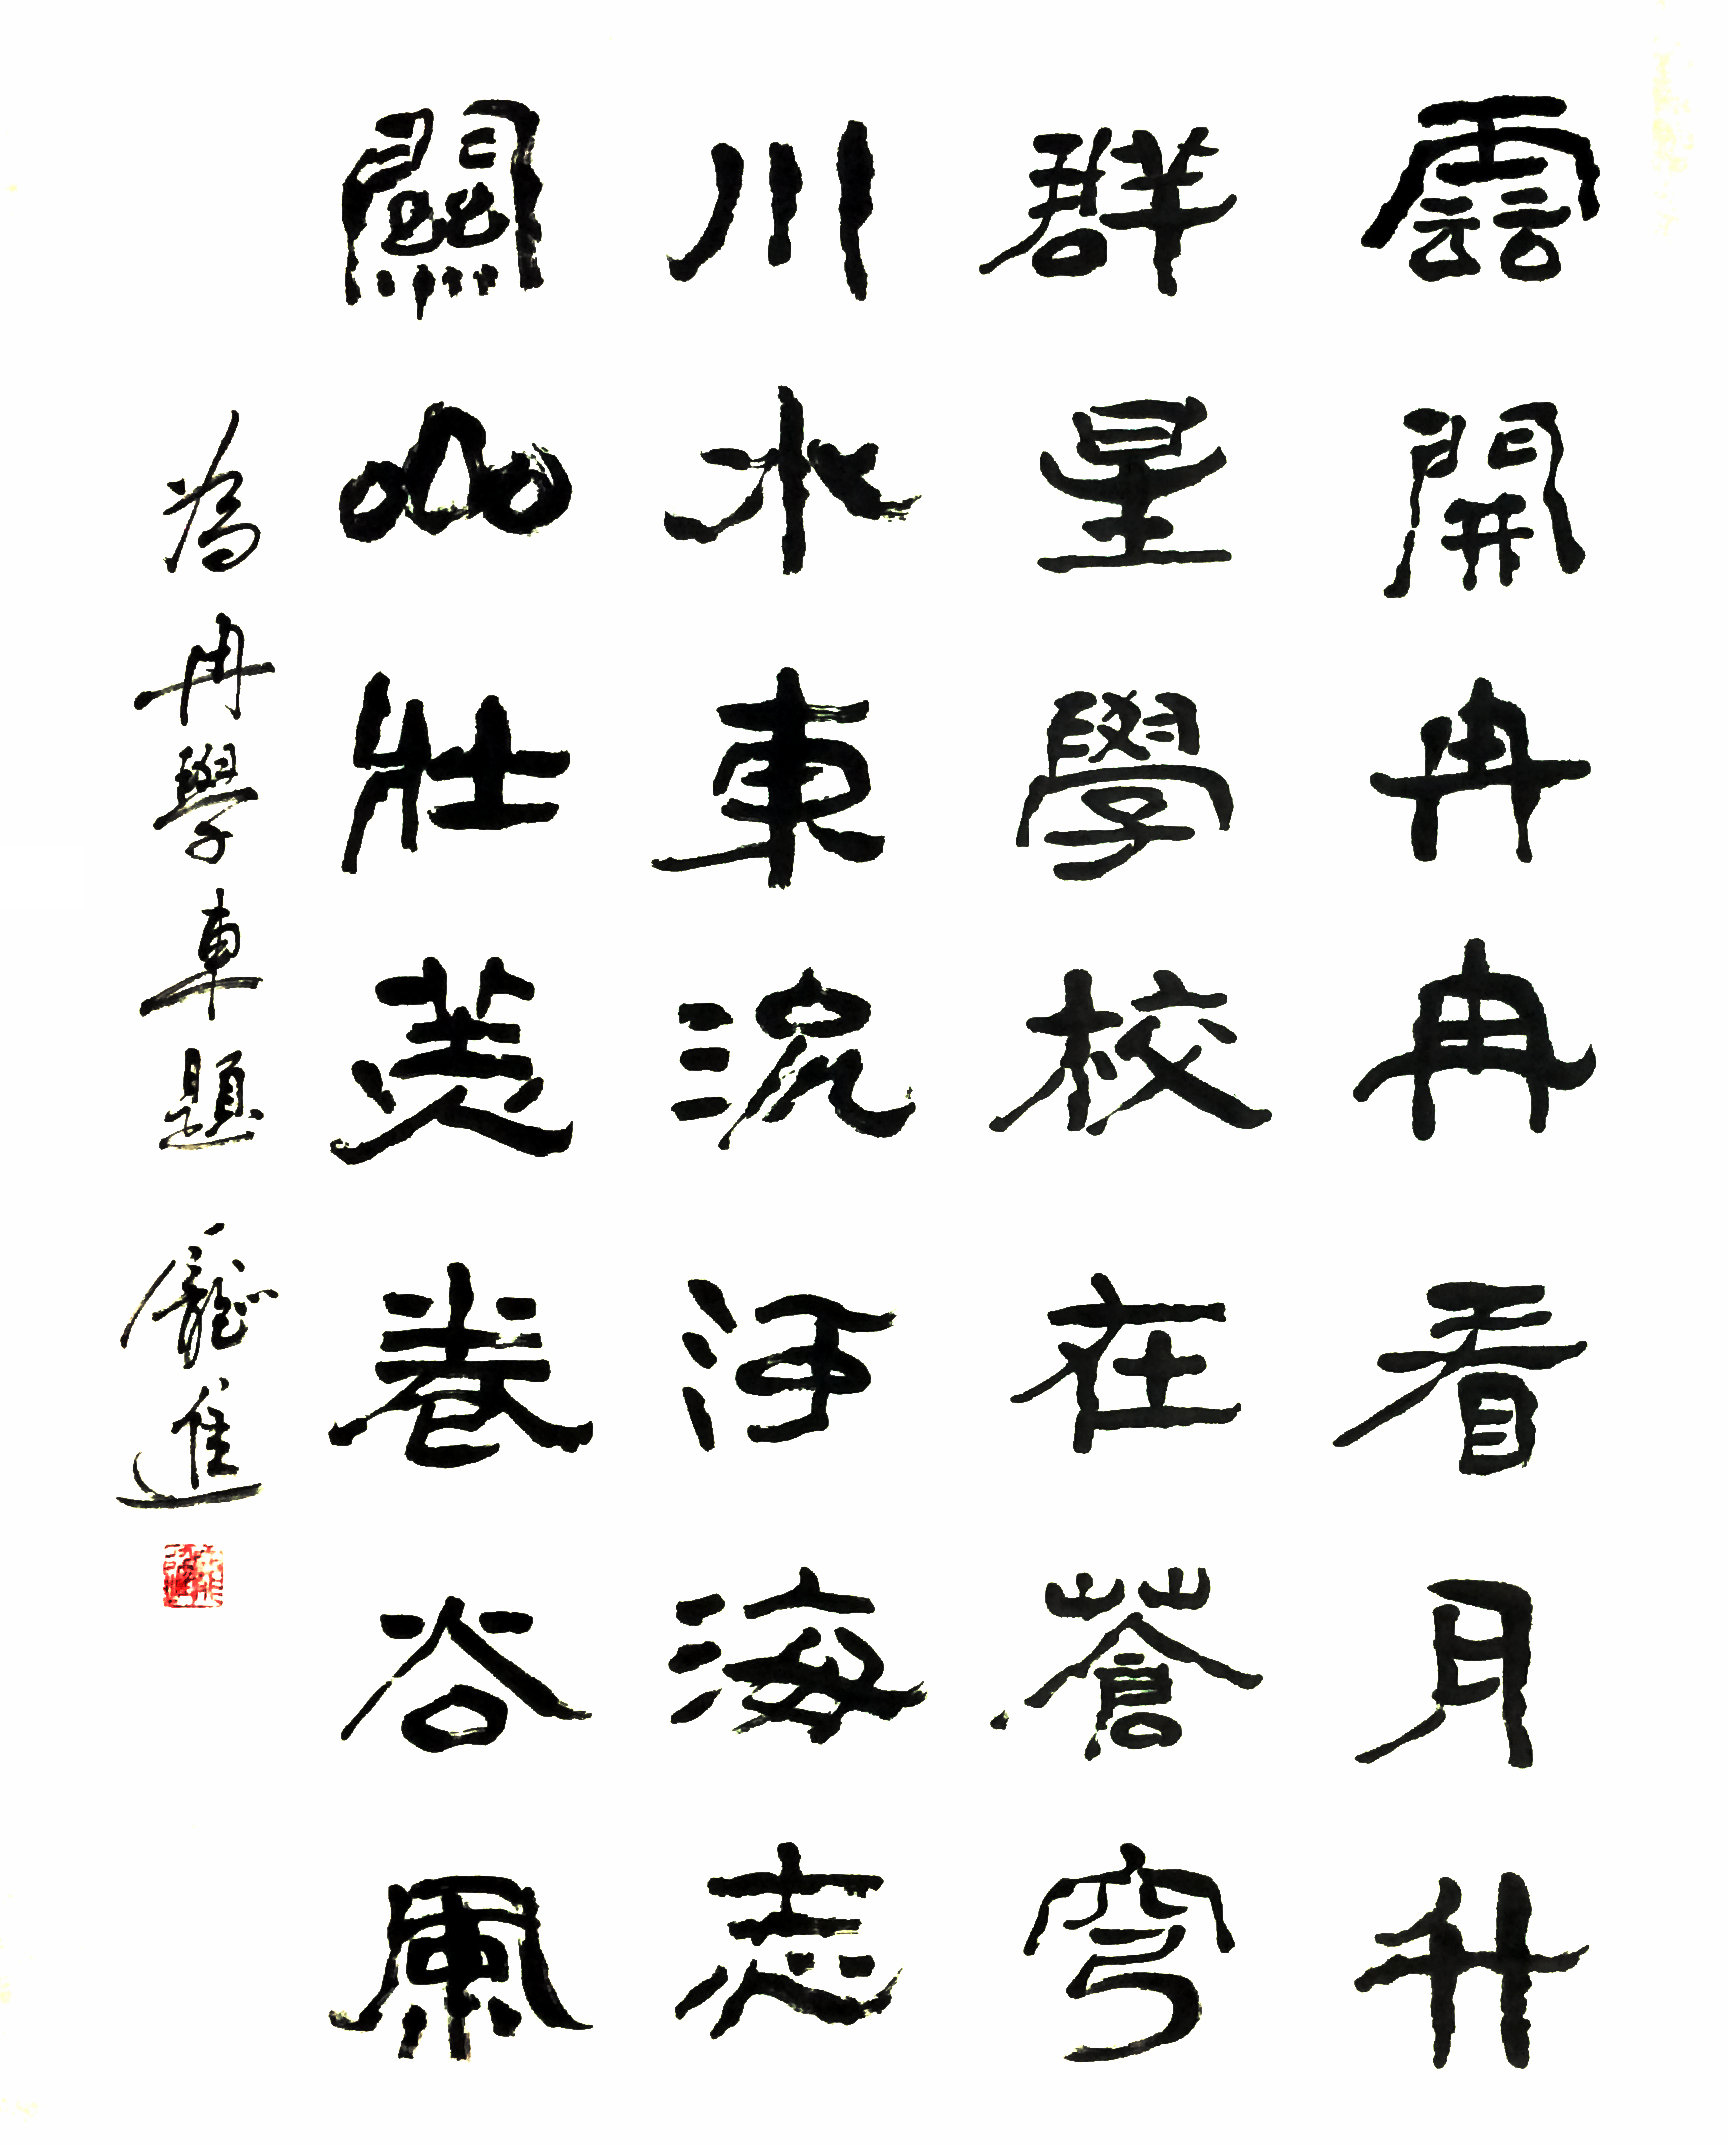 雲開冉冉看月升
群星學校在蒼穹
川水東流河海志
關山壯美卷谷風
為冉學東題 龐進